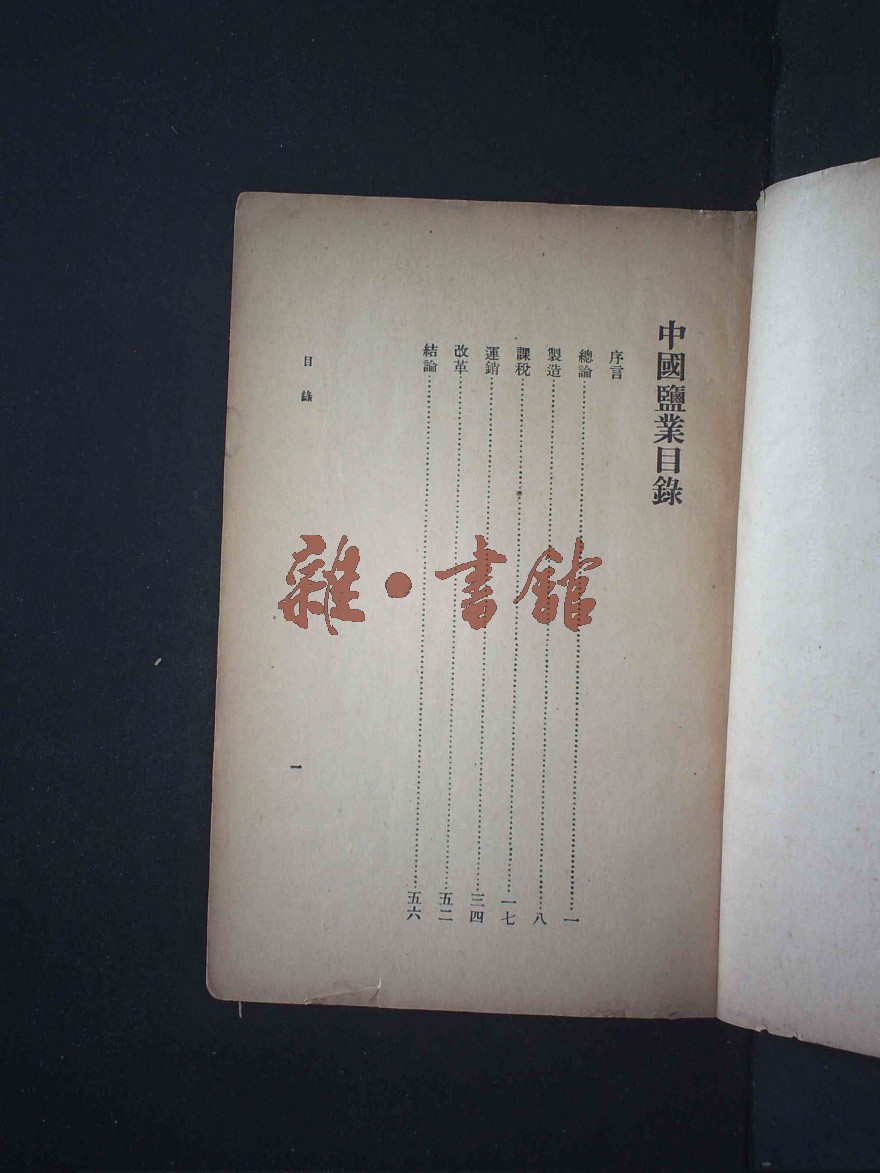 中國鹽業目錄
序言
總論………一
製造………八
課稅………一七
運銷………三四
改革………五二
結論………五六
目錄
一
雜·書館